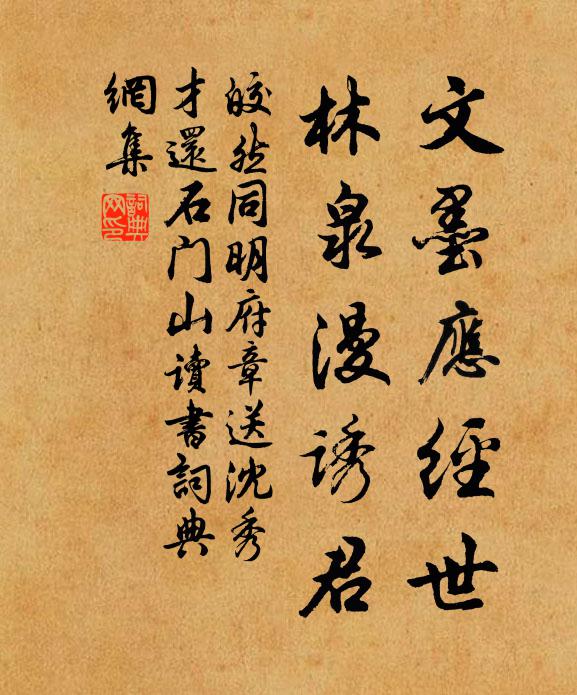 文墨應經世
林泉漫誘君
皎然同明府章送沈秀
才還石门山讀書詞典
網集
詞典网印